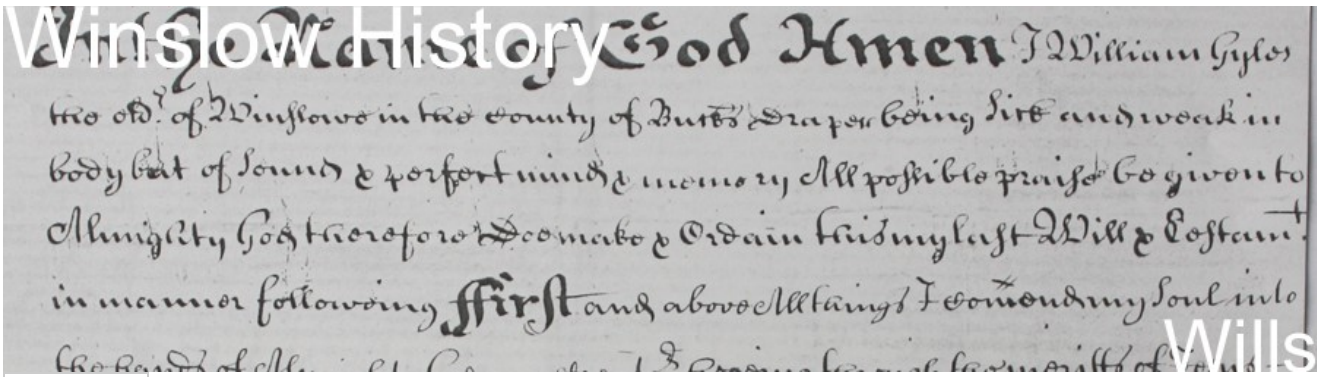 Winslow History
In the Name of God Amen I William Gyles
the eldr. of Winslowe in the County of Bucks Draper being Sick and weak in
body but of Sound & perfect mind & memory All possible praise be given to
Almighty God therefore Doe make & Ordain this my last Will & Testamt.
in manner following ffirst and above All things I comend my Soul into
the hands of my through the meritts of Jesus
Wills